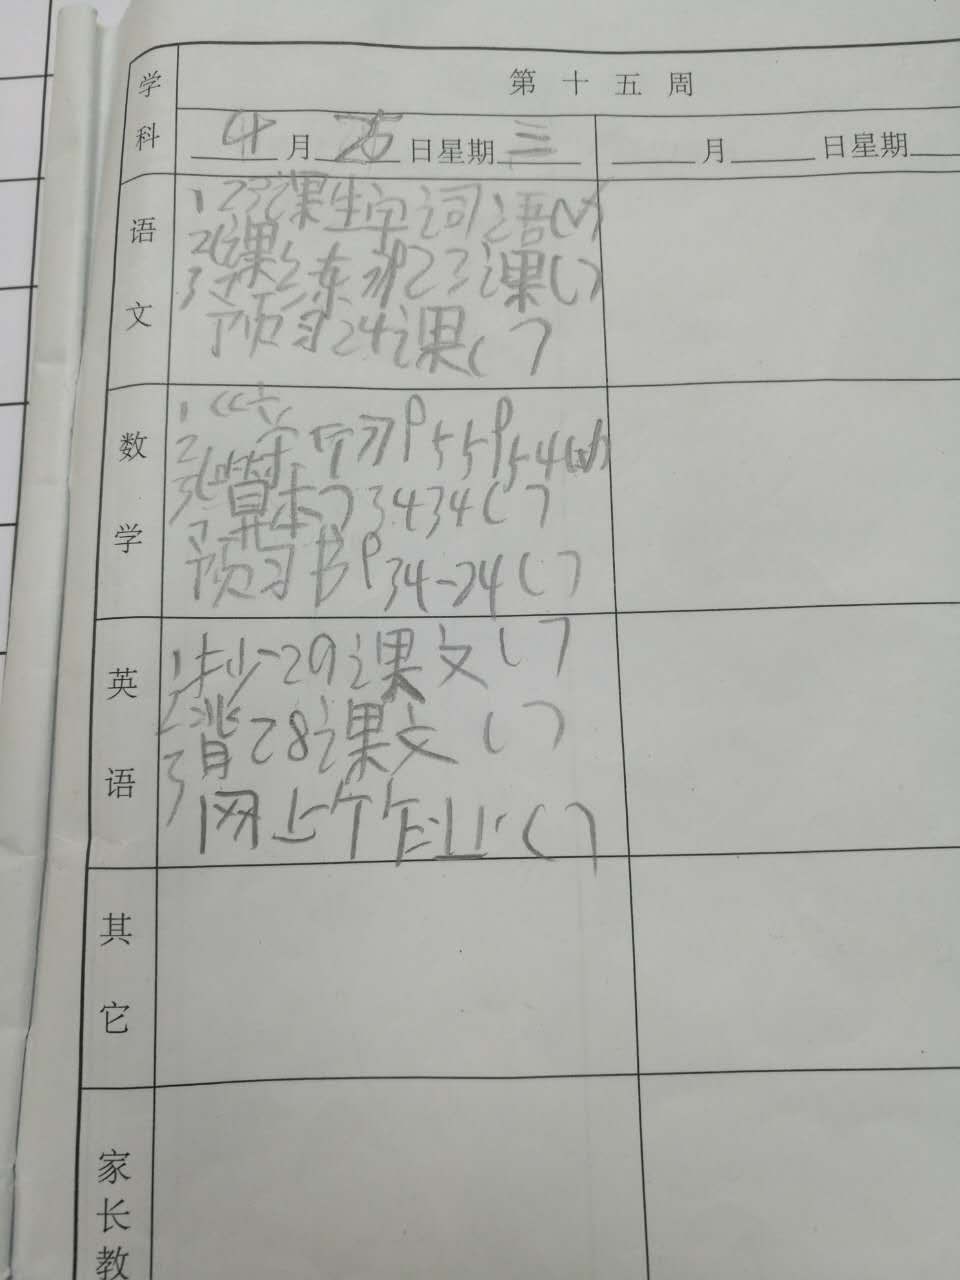 学科
第十五周
4月25日星期三
月 日星期
语文
1 23课生字词语(√)
2《课练》P23课()
3 预习24课()
数学
1《
2 练习P55P54(√)
3《算本》3434()
预习书P34-24()
英语
1 抄29课文()
2 背28课文()
3 网上个作业()
其它
家长教